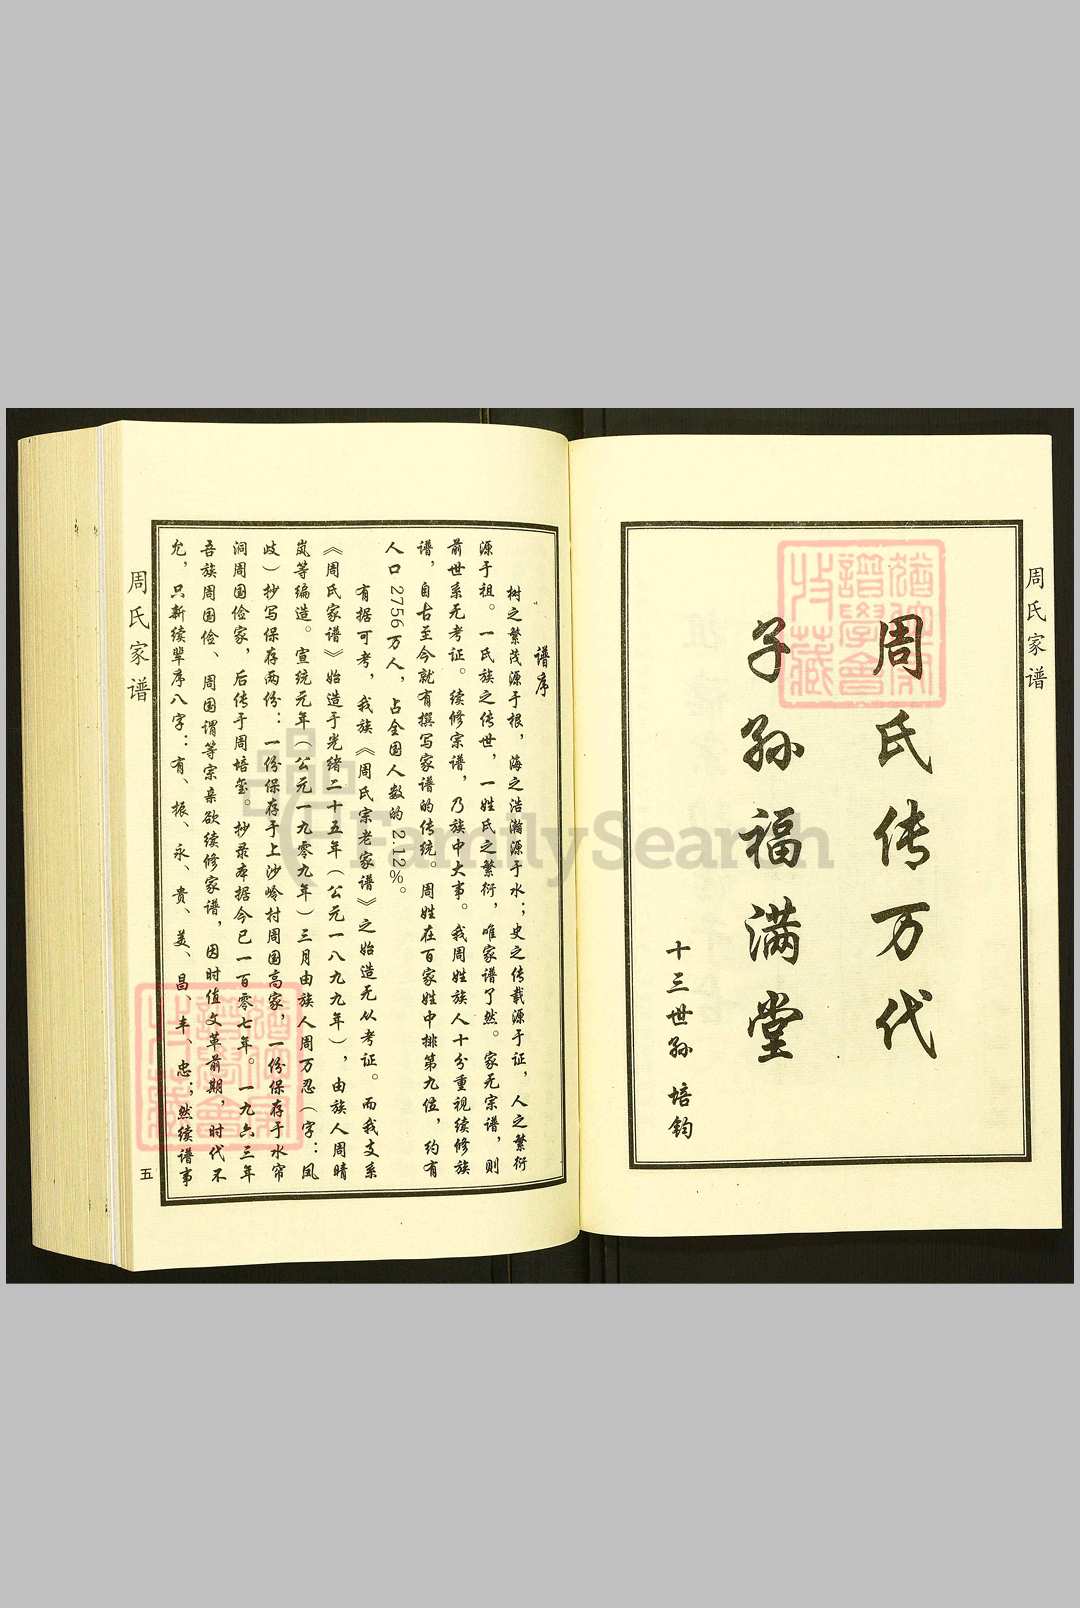 周氏家谱
周氏传万代
子孙福满堂
十三世孙 培钧
谱序
树之繁茂源于根，海之浩瀚源于水；史之传载源于证，人之繁衍
源于祖。一氏族之传世，一姓氏之繁衍，唯家谱了然。家无宗谱，则
前世系无考证。续修宗谱，乃族中大事。我周姓族人十分重视续修族
谱，自古至今就有撰写家谱的传统。周姓在百家姓中排第九位，约有
人口2756万人，占全国人数的2.12%。
有据可考，我族《周氏宗老家谱》之始造无从考证。而我支系
《周氏家谱》始造于光绪二十五年（公元一八九九年），由族人周晴
岚等编造。宣统元年（公元一九零九年）三月由族人周万忍（字：凤
歧）抄写保存两份：一份保存于上沙岭村周国高家，一份保存于水帘
洞周国俭家，后传于周培玺。抄录本据今已一百零七年。一九六三年
吾族周国俭、周国谓等宗亲欲续修家谱，因时值文革前期，时代不
允，只新续辈序八字：有、振、永、贵、美、昌、丰、忠；然续谱事
周氏家谱
五
FamilySearch